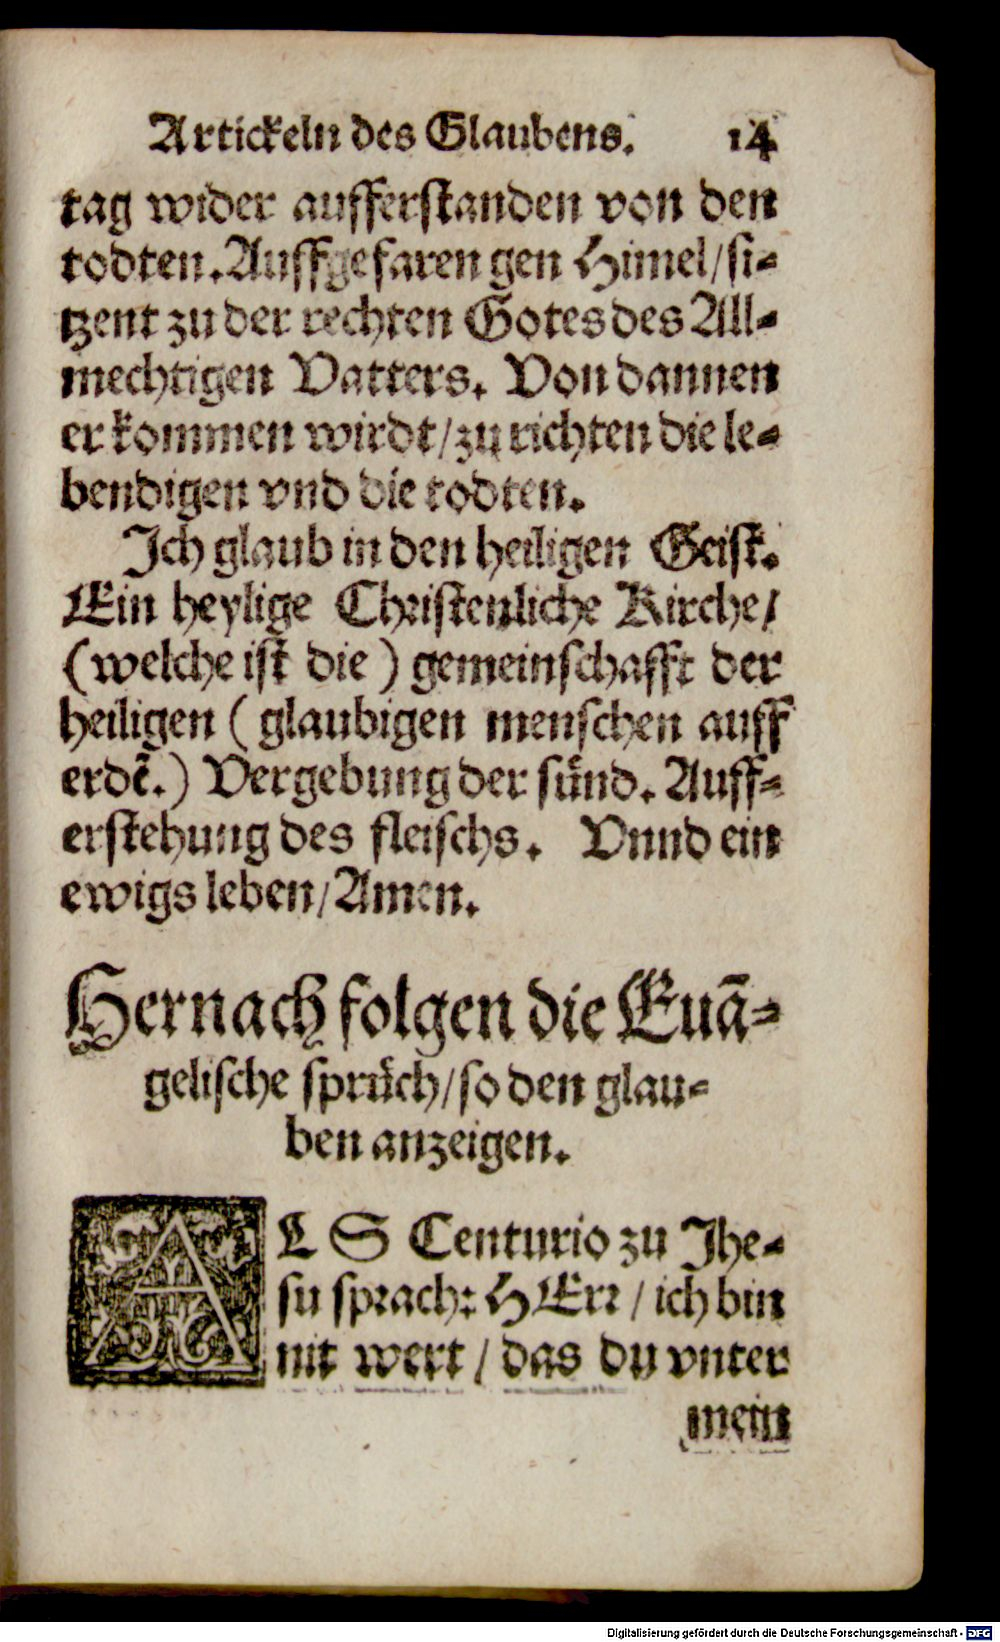 Artickeln des Glaubens. 14
tag wider aufferstanden von den
todten. Auffgefaren gen Himel/ si-
tzent zu der rechten Gotes des All-
mechtigen Vatters. Von dannen
er kommen wirdt/ zu richten die le-
bendigen vnd die todten.
Ich glaub in den heiligen Geist.
Ein heylige Christenliche Kirche/
(welche ist die) gemeinschafft der
heiligen (glaubigen menschen auff
erdẽ.) Vergebung der sünd. Auff-
erstehung des fleischs. Vnnd ein
ewigs leben/ Amen.
Hernach folgen die Euã-
gelische sprüch/ so den glau-
ben anzeigen.
ALS Centurio zu Jhe-
su sprach: HErr/ ich bin
nit wert/ das du vnter
mein
Digitalisierung gefördert durch die Deutsche Forschungsgemeinschaft - DFG